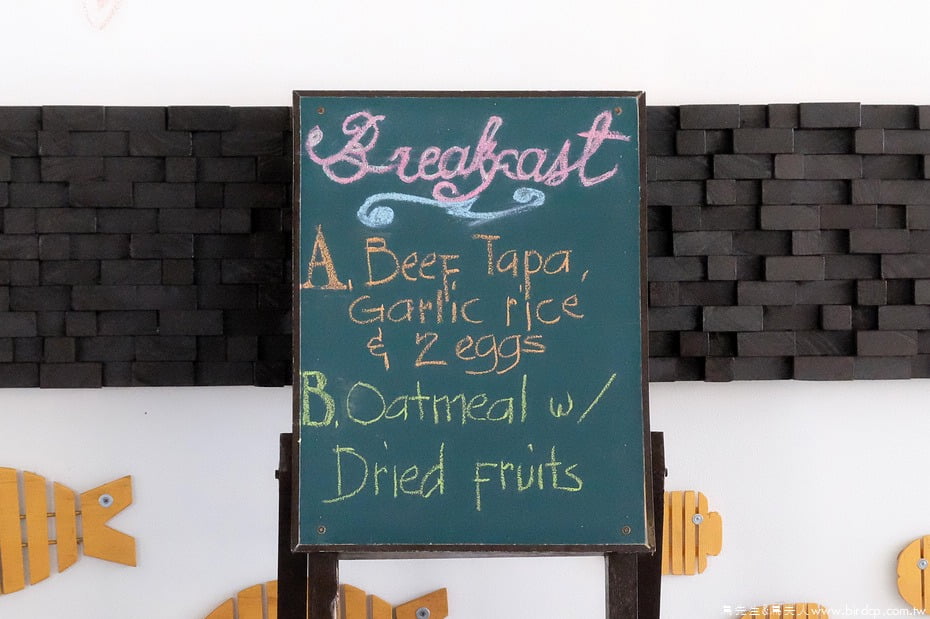 Breakfast
A. Beef Tapa,
Garlic rice
& 2 eggs
B. Oatmeal w/
Dried fruits
鳥先生&鳥夫人www.birdqp.com.tw